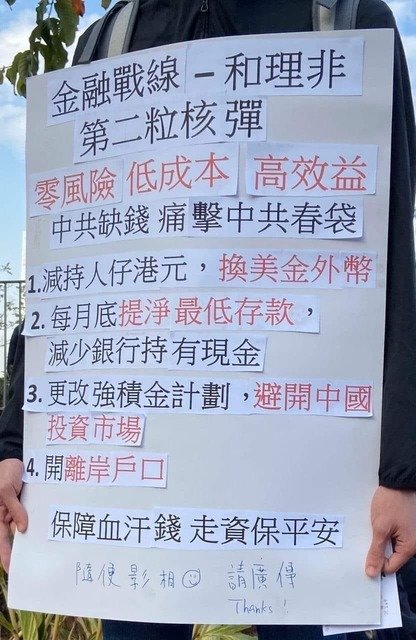 金融戰線 – 和理非
第二粒核彈
零風險 低成本 高效益
中共缺錢 痛擊中共春袋
1. 減持人仔港元，換美金外幣
2. 每月底提淨最低存款，
減少銀行持有現金
3. 更改強積金計劃，避開中國
投資市場
4. 開離岸戶口
保障血汗錢 走資保平安
隨便影相☺ 請廣傳
Thanks!